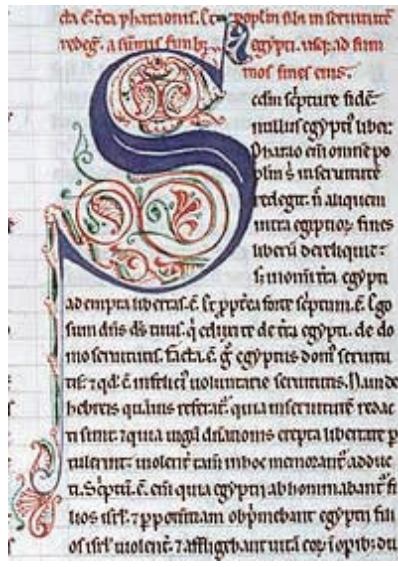 cta ē. t̄ra pharaonis. Et poplm̄ sibi in seruitutē
redeḡ. a sūmis finib; egypti. usq; ad sum
mos fines eius.
Scdm̄ scpt̄ure fidē
nullus egypti' liber
Pharao eni omnē po
plm̄ s' in seruitutē
redegit. n̄ aliquem
intra egiptior̄ fines
liberū dereliquit:
s; in omni t̄ra egypti
adempta libertas. ē. Et ppt̄ea forte scptum. ē. Ego
sum dn̄s ds̄ tuus. q' eduxi te de t̄ra egypti. de do
mo seruitutis. facta. ē. g° egyptiis dom' seruitu
tis: ⁊ qd. ē infelici' uoluntarie seruitutis. N. unde
hebreis quāuis referat'. quia in seruitutē redac
ti sint. ⁊ quia dn̄ationis erepta libertate p
tulerint: uiolent̄ tam̄ in hoc memorant' adduc
ti. Scptū. ē. eni quia egyptii abhominabant' fi
lios isrl̄. ⁊ p potentiam opp̄mebant egyptii fili
os isrl̄ uiolent̄. ⁊ affligebant uitā eor̄ ī opib; du